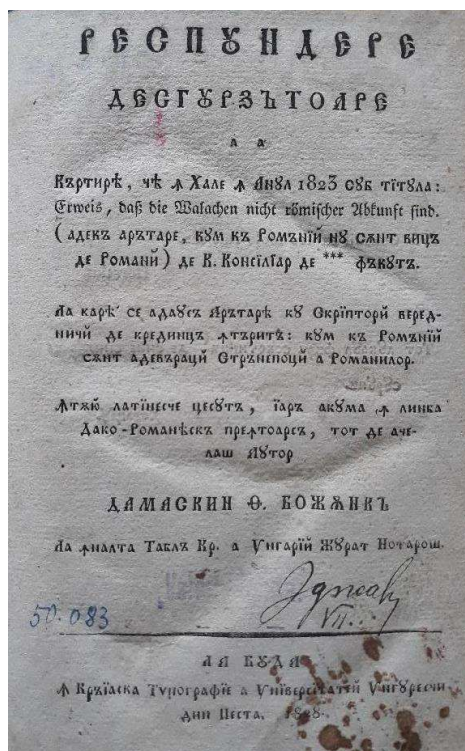 РЕСПꙊНДЕРЕ
ДЕСГꙊРЗЪТОАРЕ
ЛА
Къртирѣ, чѣ ꙟ Хале ꙟ Анул 1823 суб тїтула:
Erweis, daß die Walachen nicht römischer Abkunft sind.
(адекъ арътаре, кум къ Ромънїй ну сѫнт вицъ
де Романй) де К. Консїлїар де *** фъкутъ.
Ла карѣ се адаусъ Арътарѣ ку Скрїпторй веред-
ничй де крединцъ ꙟтъритъ: кум къ Ромънїй
сѫнт адевърацй Стрънепоцй а Романилор.
Ꙟтѫю латїнесче цесутъ, їар акума ꙟ лимба
Дако-Романѣскъ преꙟтоарсъ, тот де аче-
лаш Аутор
ДАМАСКИН Ѳ. БОЖѪНКЪ
Ла ꙟналта Таблъ Кр. а Унгарїй Жꙋрат Нотарош.
VII.
50.083
ЛА БꙊДА
ꙟ Кръїаска Тѵпографїе а Унїверсїтатей Унгꙋресчи
дин Песта. 1828.